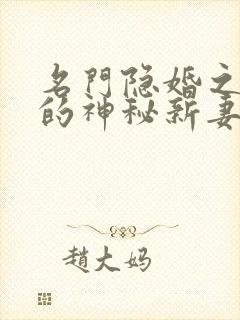 名門隐婚之
的神秘新妻
趙大妈